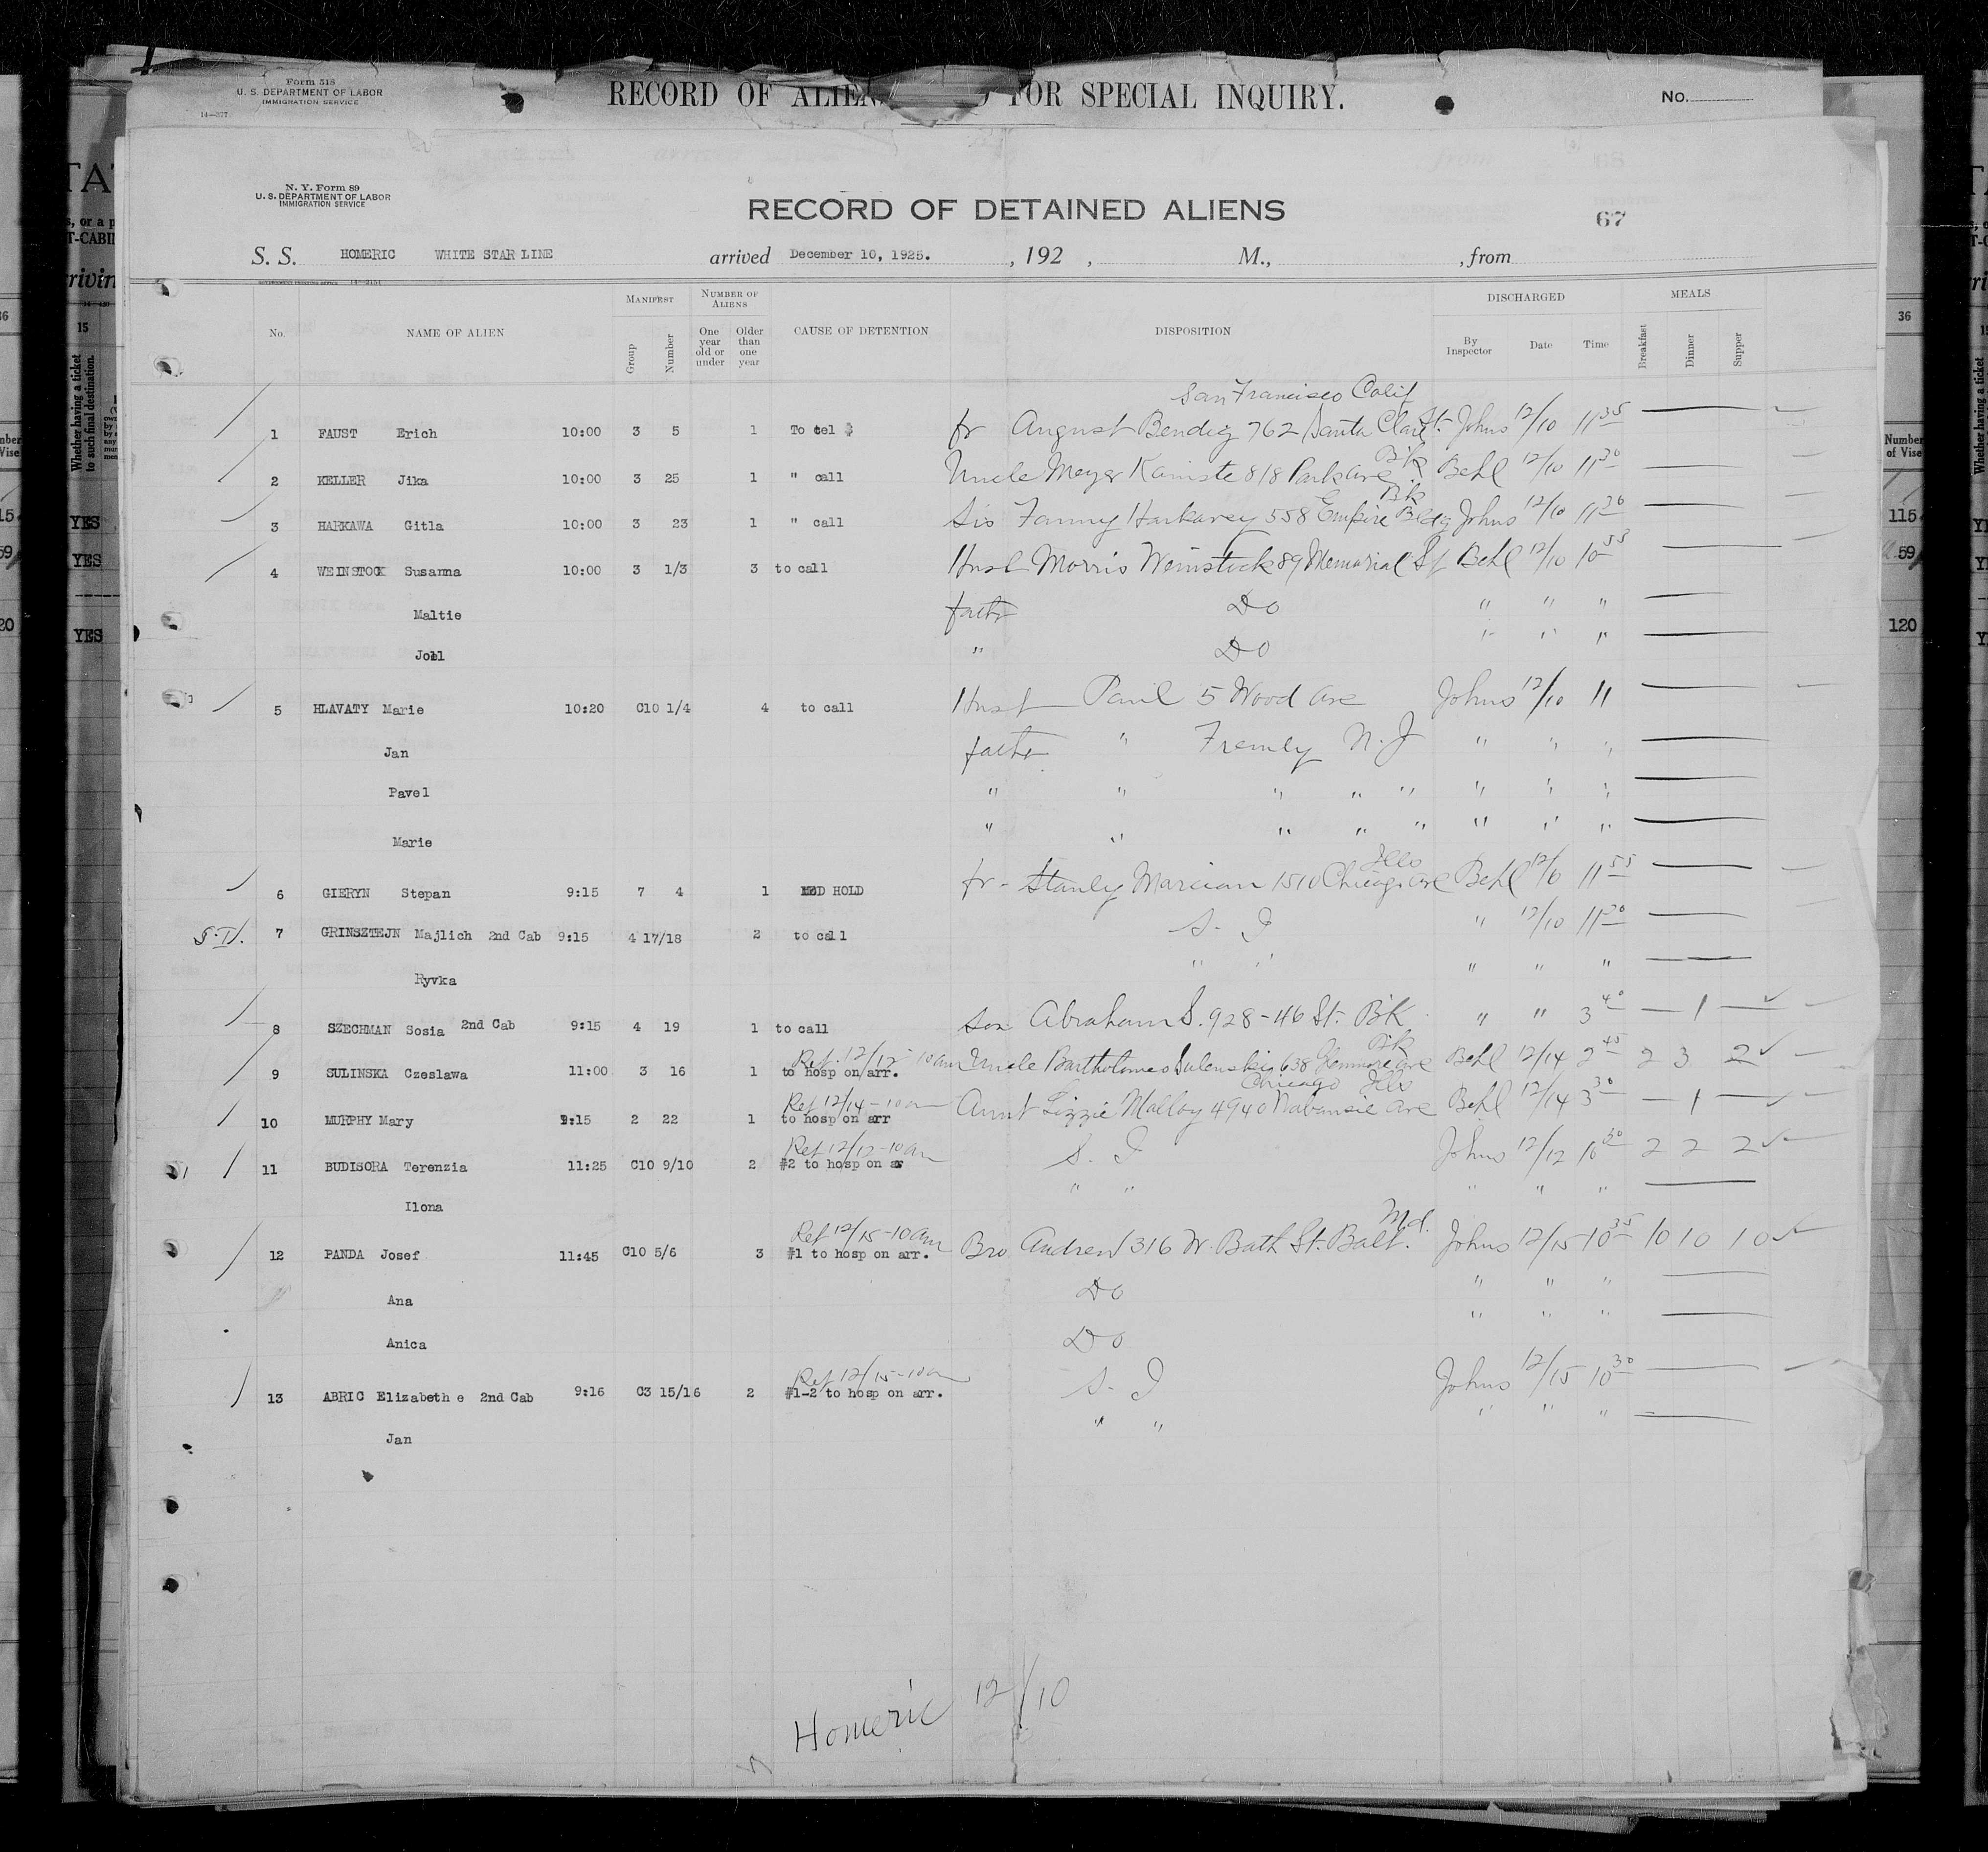 Form 518
U. S. DEPARTMENT OF LABOR
IMMIGRATION SERVICE
14—377
RECORD OF ALIEN FOR SPECIAL INQUIRY.
No.
N. Y. Form 89
U. S. DEPARTMENT OF LABOR
IMMIGRATION SERVICE
RECORD OF DETAINED ALIENS
67
S. S. HOMERIC WHITE STAR LINE arrived December 10, 1925. , 192 , M., , from
GOVERNMENT PRINTING OFFICE 14—2151
No. NAME OF ALIEN MANIFEST Group Number NUMBER OF ALIENS One year old or under Older than one year CAUSE OF DETENTION DISPOSITION DISCHARGED By Inspector Date Time MEALS Breakfast Dinner Supper
San Francisco Calif
1 FAUST Erich 10:00 3 5 1 To tel fr August Bendig 762 Santa Clara St. Johns 12/10 11 35
Bk
2 KELLER Jika 10:00 3 25 1 " call Uncle Meyer 818 Park Ave Behl 12/10 11 30
Bk
3 HARKAWA Gitla 10:00 3 23 1 " call Sis Fanny Harkavey 558 Empire Bldg Johns 12/10 11 30
4 WEINSTOCK Susanna 10:00 3 1/3 3 to call Husb Morris Weinstock 89 Memorial St Behl 12/10 10 55
Maltie fath Do " " "
Joel " Do " " "
5 HLAVATY Marie 10:20 C10 1/4 4 to call Husb Paul 5 Wood Ave Johns 12/10 11
Jan fath " Tremly N. J " " "
Pavel " " " " " " " "
Marie " " " " " " " "
Ills
6 GIERYN Stepan 9:15 7 4 1 MED HOLD fr - Stanley Marcian 1510 Chicago Ave Behl 12/10 11 55
S.I. 7 GRINSZTEJN Majlich 2nd Cab 9:15 4 17/18 2 to call S. I " 12/10 11 30
Ryvka " " " " "
8 SZECHMAN Sosia 2nd Cab 9:15 4 19 1 to call son Abraham S. 928 - 46 St. BK " " 3 40 — 1 —
Ref. 12/12 - 10 am Bk
9 SULINSKA Czeslawa 11:00 3 16 1 to hosp on arr. Uncle Bartholomeo Sulenskig 638 Glenmore Ave Behl 12/14 2 45 2 3 2
Ref 12/14 - 10 am Chicago Ills
10 MURPHY Mary 9:15 2 22 1 to hosp on arr Aunt Lizzie Malloy 4940 Ave Behl 12/14 3 30 — 1 —
Ref 12/12 - 10 am
11 BUDISORA Terenzia 11:25 C10 9/10 2 #2 to hosp on ar S. I Johns 12/12 10 30 2 2 2
Ilona " " " " "
Ref 12/15 - 10 am Md.
12 PANDA Josef 11:45 C10 5/6 3 #1 to hosp on arr. Bro Andrew 316 W. Bath St. Balt. Johns 12/15 10 35 10 10 10
Ana Do " " "
Anica Do " " "
Ref 12/15 - 10 am
13 ABRIC Elizabethe 2nd Cab 9:16 C3 15/16 2 #1-2 to hosp on arr. S. I Johns 12/15 10 30
Jan " " " " "
Homeric 12/10
15
Whether having a ticket to such final destination.
YES
YES
YES
36
Number of Vise
115
59
120